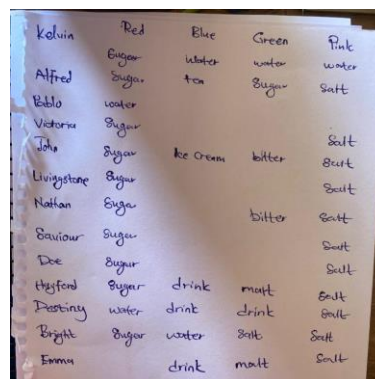 Kelvin Red Blue Green Pink
Sugar water water water
Alfred Sugar tea Sugar Salt
Pablo water
Victoria Sugar Salt
John Sugar Ice Cream bitter Salt
Livingstone Sugar Salt
Nathan Suga bitter Salt
Saviour Sugar Salt
Doe Sugar Salt
Hayford Sugar drink malt Salt
Destiny water drink drink Salt
Bright Sugar water Salt Salt
Emma drink malt Salt